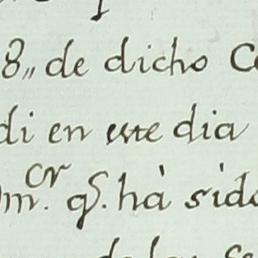 8,, de dicho C
di en este dia
m.cr qͤ. hà sido